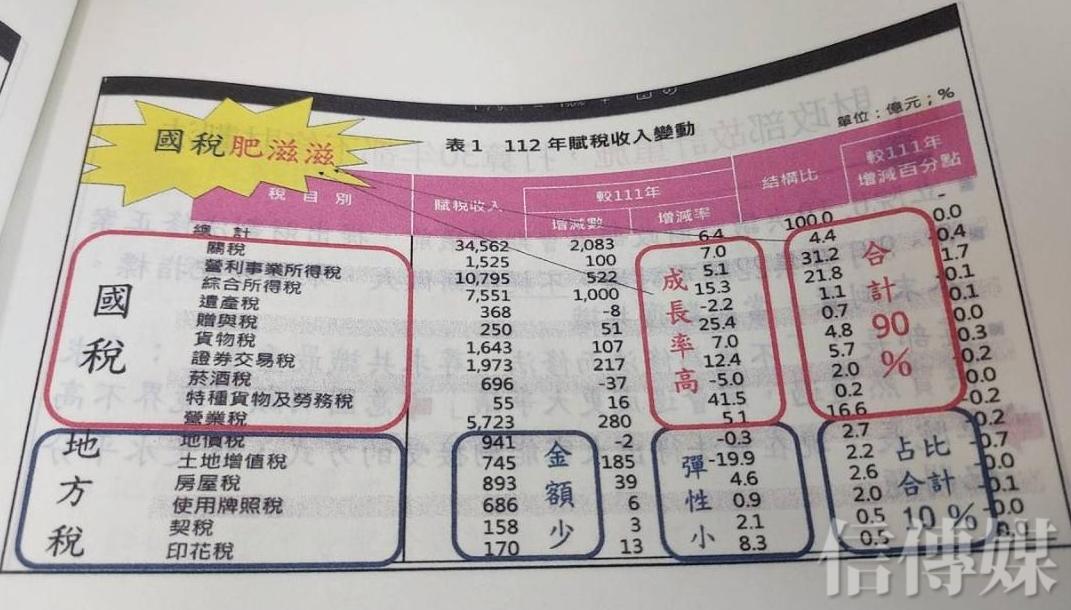 國稅肥滋滋
表1 112年賦稅收入變動
單位：億元；%
稅目別 賦稅收入 較111年 結構比 較111年增減百分點
增減數 增減率
總計 34,562 2,083 6.4 100.0 -
關稅 1,525 100 7.0 4.4 0.0
營利事業所得稅 10,795 522 5.1 31.2 -0.4
綜合所得稅 7,551 1,000 15.3 21.8 1.7
遺產稅 368 -8 -2.2 1.1 -0.1
贈與稅 250 51 25.4 0.7 0.1
貨物稅 1,643 107 7.0 4.8 0.0
證券交易稅 1,973 217 12.4 5.7 0.3
菸酒稅 696 -37 -5.0 2.0 -0.2
特種貨物及勞務稅 55 16 41.5 0.2 0.0
營業稅 5,723 280 5.1 16.6 -0.2
地價稅 941 -2 -0.3 2.7 -0.2
土地增值稅 745 -185 -19.9 2.2 -0.7
房屋稅 893 39 4.6 2.6 0.0
使用牌照稅 686 6 0.9 2.0 -0.1
契稅 158 3 2.1 0.5 -0.0
印花稅 170 13 8.3 0.5
國稅
成長率高
合計90%
地方稅
金額少
彈性小
占比合計10%
信傳媒